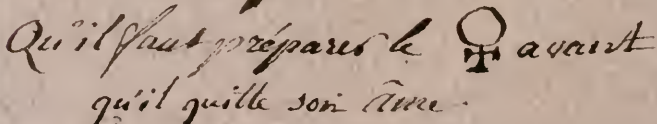 Qu'il faut préparer le ♀ avant
qu'il quitte son âme.